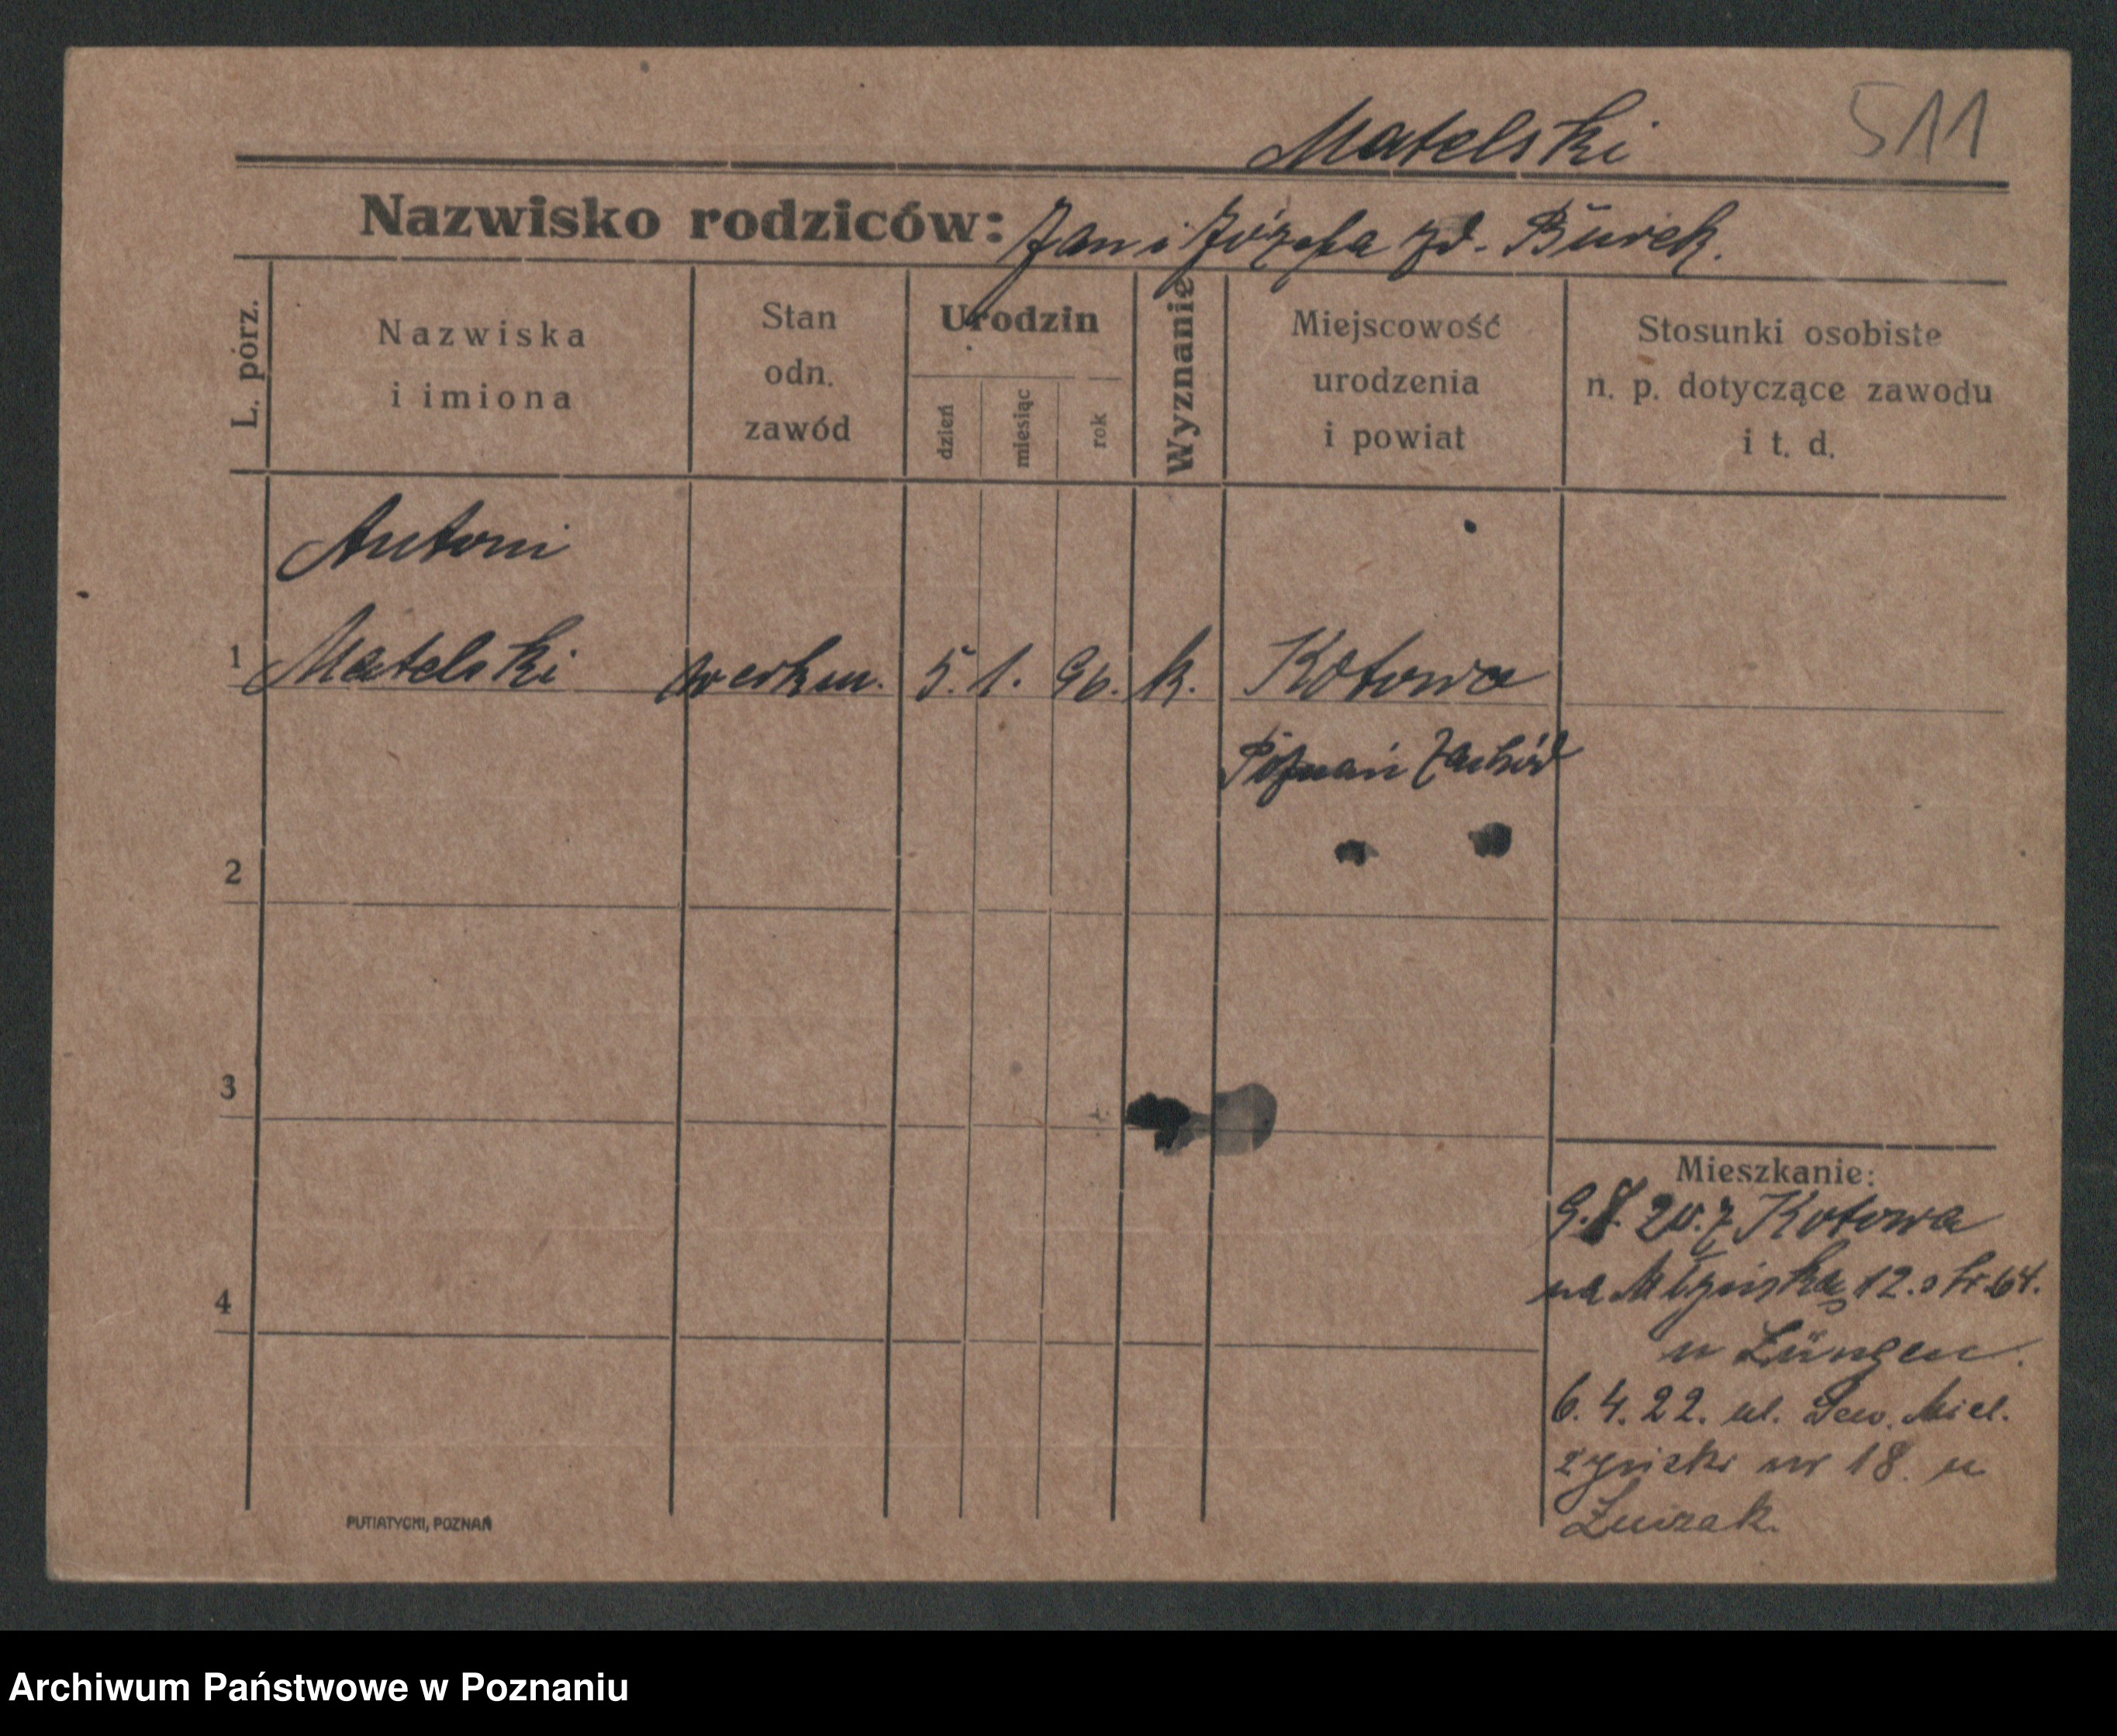 Matelski 511
Nazwisko rodziców: Jan i Józefa zd. Burek.
L. pórz.
Nazwiska
i imiona
Stan
odn.
zawód
Urodzin
dzień
miesiąc
rok
Wyznanie
Miejscowość
urodzenia
i powiat
Stosunki osobiste
n. p. dotyczące zawodu
i t. d.
Antoni
1 Matelski werkm. 5. 1. 96. k. Kotowa
Poznań Zachód
2
3
4
Mieszkanie:
20. z Kotowa
na 12. str. 64.
u
6. 4. 22. ul. Sew. Miel.
żyński nr 18. u
PUTIATYCKI, POZNAŃ
Archiwum Państwowe w Poznaniu